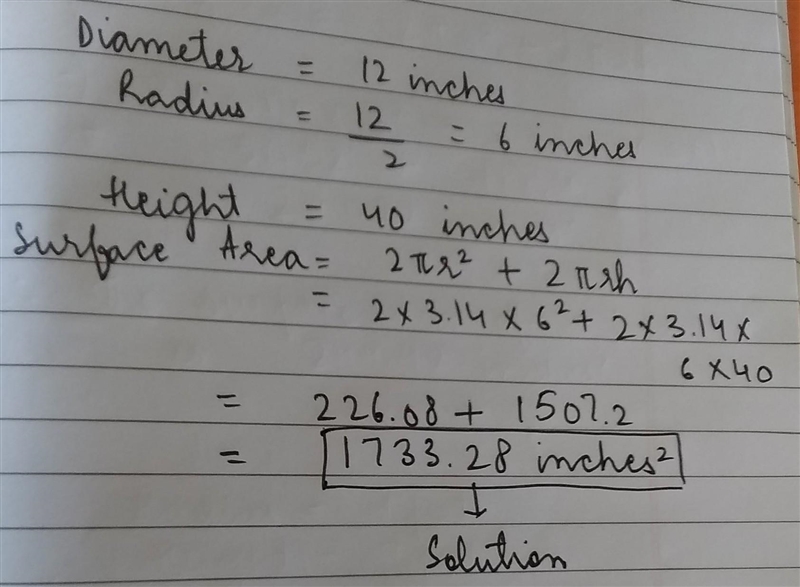 Diameter = 12 inches
Radius = 12/2 = 6 inches
Height = 40 inches
Surface Area = 2πr² + 2πrh
= 2 × 3.14 × 6² + 2 × 3.14 ×
6 × 40
= 226.08 + 1507.2
= 1733.28 inches²
↓
Solution